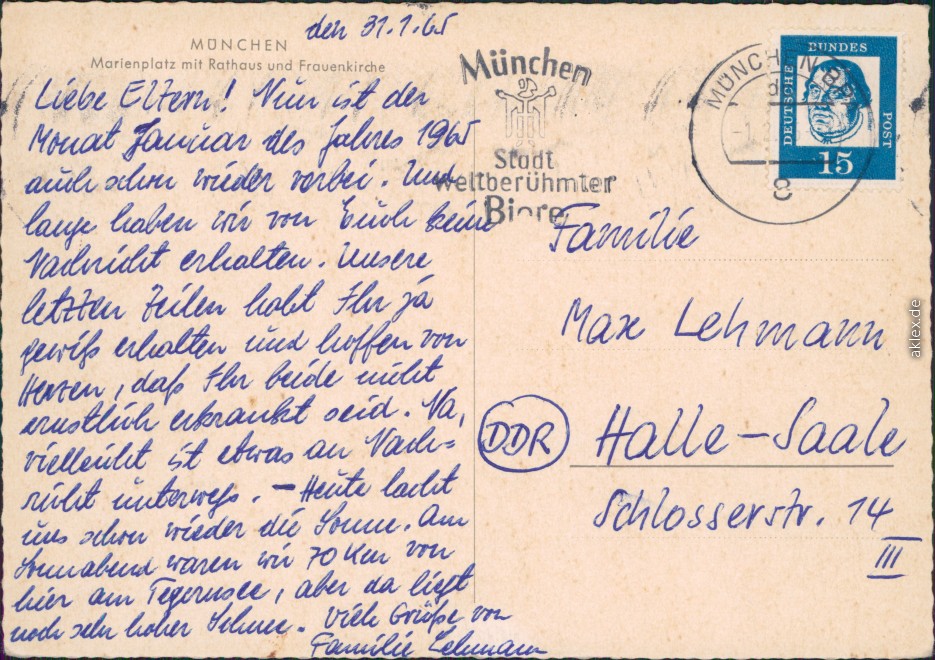 den 31.1.65
MÜNCHEN
Marienplatz mit Rathaus und Frauenkirche
Liebe Eltern! Nun ist der
Monat Januar des Jahres 1965
auch schon wieder vorbei. Und
lange haben wir von Euch keine
Nachricht erhalten. Unsere
letzten Zeilen habt Ihr ja
gewiß erhalten und hoffen von
Herzen, daß Ihr beide nicht
ernstlich erkrankt seid. Na,
vielleicht ist etwas an Nach=
richt unterwegs. – Heute lacht
uns schon wieder die Sonne. Am
Sonnabend waren wir 70 Km von
hier am Tegernsee, aber da liegt
noch sehr hoher Schnee. Viele Grüße von
Familie Lehmann
München
Stadt
weltberühmter
Biere
MÜNCHEN
8
DEUTSCHE
BUNDES
POST
15
Familie
Max Lehmann
DDR Halle-Saale
Schlosserstr. 14
III
aklex.de